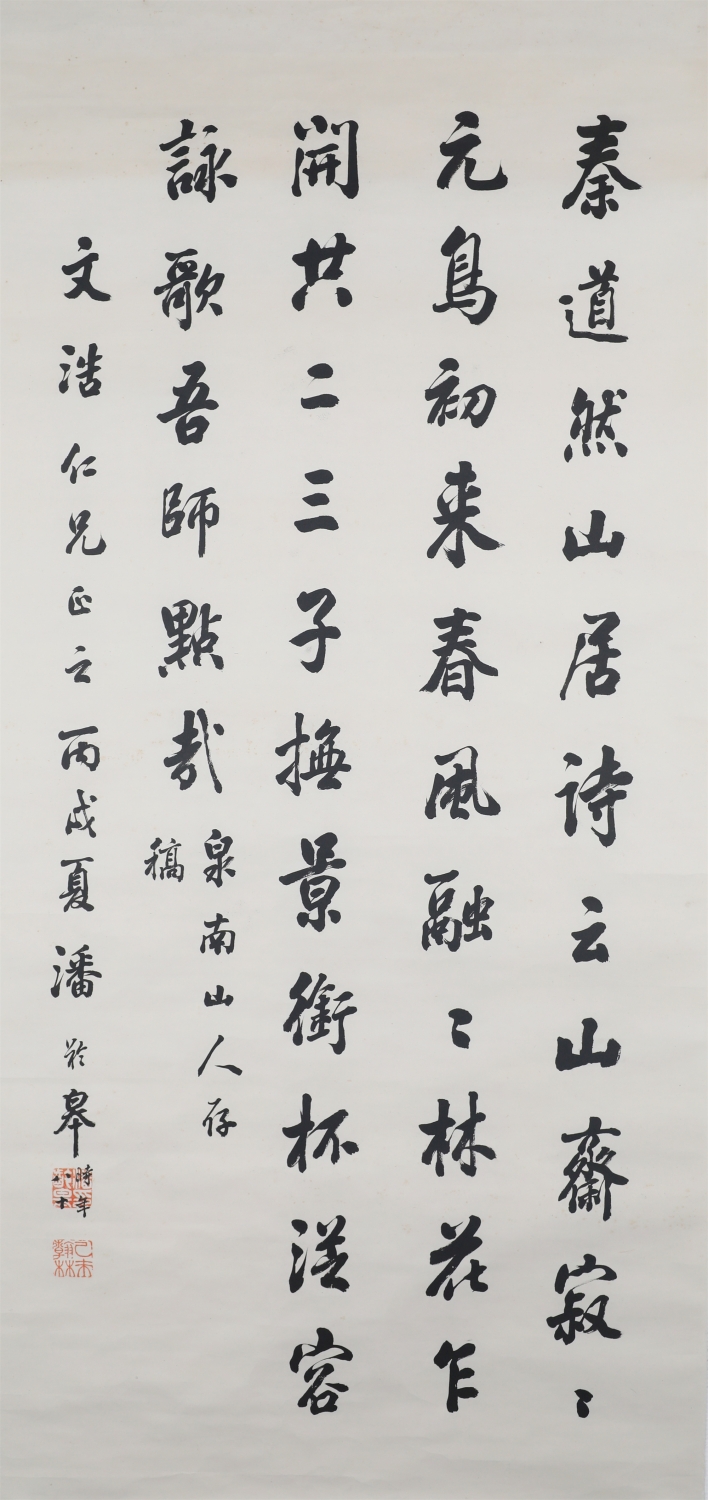 秦道然山居诗云山齋寂〻
元鳥初来春風融〻林花乍
開共二三子撫景銜杯従容
詠歌吾師點哉
泉南山人存
稿
文浩仁兄正之丙戌夏潘齡皋
時年
八十
己未
翰林